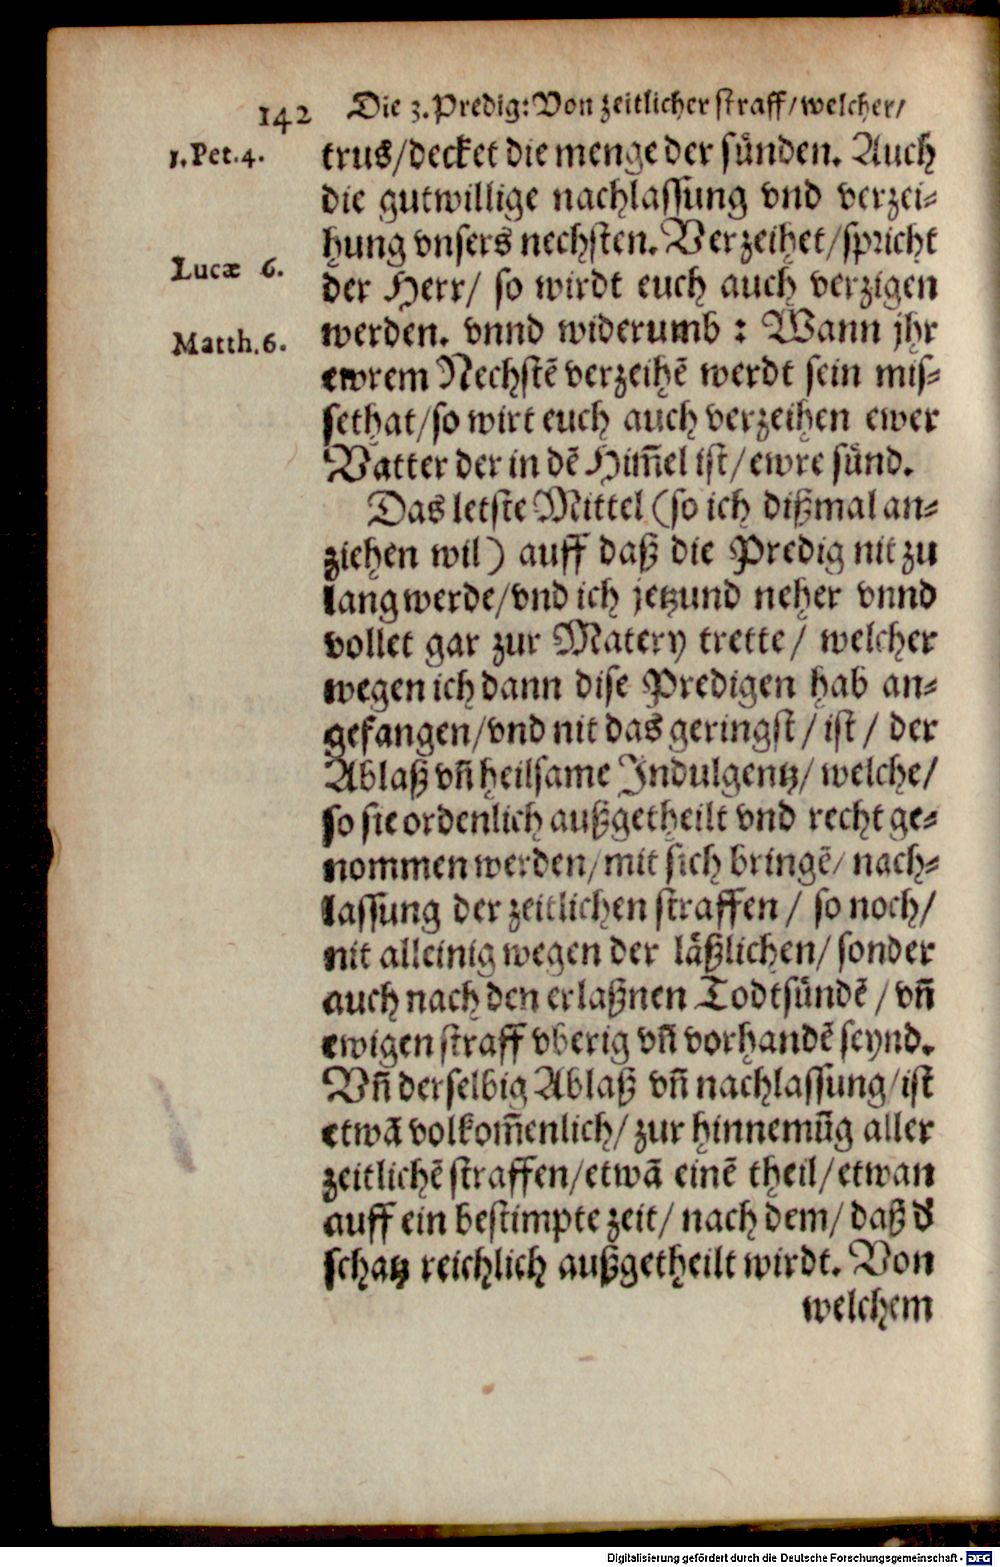 142 Die 3. Predig: Von zeitlicher straff/ welcher/
1. Pet. 4.
trus/ decket die menge der sünden. Auch
die gutwillige nachlassung vnd verzei-
hung vnsers nechsten. Verzeihet/ spricht
Lucæ 6.
der Herr/ so wirdt euch auch verzigen
Matth. 6.
werden. vnnd widerumb : Wann jhr
ewrem Nechstē verzeihē werdt sein mis-
sethat/ so wirt euch auch verzeihen ewer
Vatter der in dē Him̄el ist/ ewre sünd.
Das letste Mittel (so ich dißmal an-
ziehen wil) auff daß die Predig nit zu
lang werde/ vnd ich jetzund neher vnnd
vollet gar zur Matery trette/ welcher
wegen ich dann dise Predigen hab an-
gefangen/ vnd nit das geringst/ ist/ der
Ablaß vn̄ heilsame Indulgentz/ welche/
so sie ordenlich außgetheilt vnd recht ge-
nommen werden/ mit sich bringē/ nach-
lassung der zeitlichen straffen/ so noch/
nit alleinig wegen der läßlichen/ sonder
auch nach den erlaßnen Todtsündē/ vn̄
ewigen straff vberig vn̄ vorhandē seynd.
Vn̄ derselbig Ablaß vn̄ nachlassung/ ist
etwā volkom̄enlich/ zur hinnemūg aller
zeitlichē straffen/ etwā einē theil/ etwan
auff ein bestimpte zeit/ nach dem/ daß d̕
schatz reichlich außgetheilt wirdt. Von
welchem
Digitalisierung gefördert durch die Deutsche Forschungsgemeinschaft - DFG